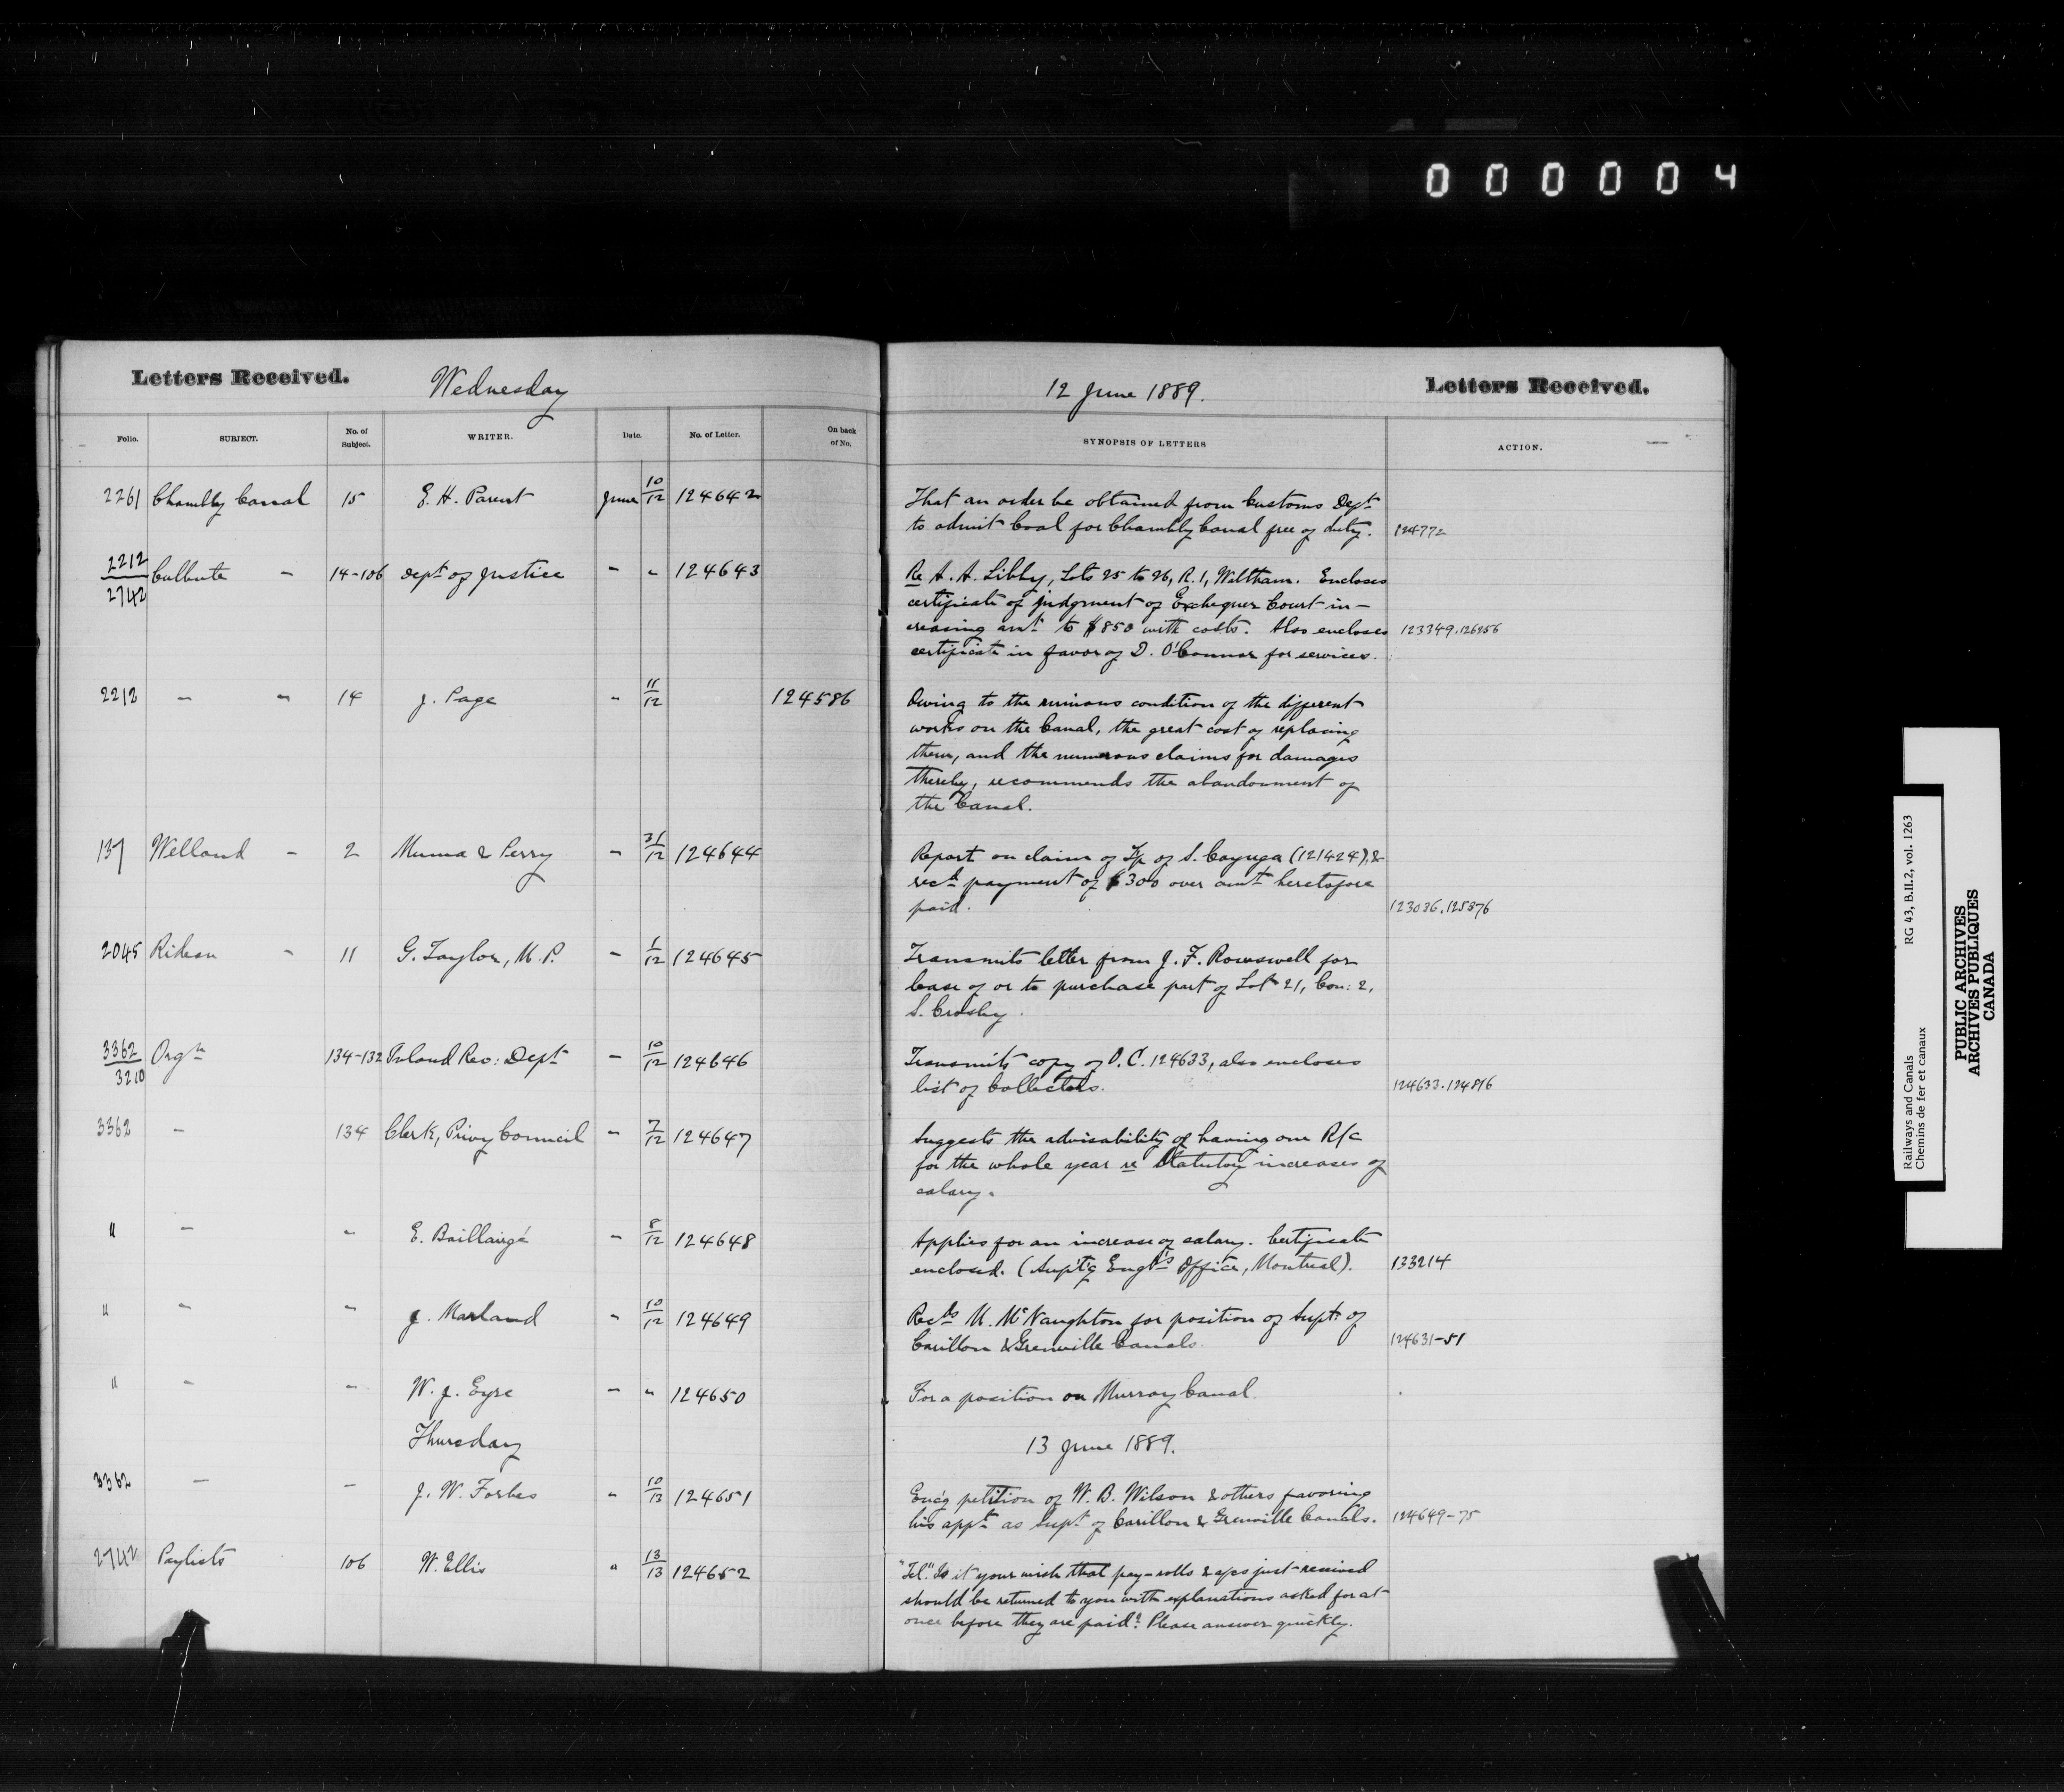 0 0 0 0 0 4
Letters Received. Wednesday 12 June 1889. Letters Received.
Folio. SUBJECT. No. of Subject. WRITER. Date. No. of Letter. On back of No. SYNOPSIS OF LETTERS ACTION.
2261 Chambly Canal 15 E. H. Parent June 10/12 124642 That an order be obtained from Customs Dept
to admit Coal for Chambly Canal free of duty. 124772
2212/2742 Culbute - 14-106 Dept of Justice - " 124643 Re A. A. Libby, Lots 25 to 26, R. 1, Waltham. Encloses
certificate of judgment of Exchequer Court in-
creasing amt to $850 with costs. Also encloses 123349.126256
certificate in favor of D. O'Connor for services.
2212 - " 14 J. Page " 11/12 124586 Owing to the ruinous condition of the different
works on the Canal, the great cost of replacing
them, and the numerous claims for damages
thereby, recommends the abandonment of
the Canal.
137 Welland - 2 Muma & Perry - 31/12 124644 Report on claim of Tp of S. Cayuga (121424), &
recd payment of $300 over amt heretofore
paid. 123036.125376
2045 Rideau - 11 G. Taylor, M.P. - 1/12 124645 Transmits letter from J. F. Rowswell for
lease of or to purchase part of Lot 21, Con: 2,
S. Crosby.
3362/3210 Orgn 134-132 Inland Rev: Dept - 10/12 124646 Transmits copy of O.C. 124633, also encloses
list of Collectors. 124633.124816
3362 - 134 Clerk, Privy Council - 7/12 124647 Suggests the advisability of having one R/c
for the whole year re Statutory increases of
salary.
" - " E. Baillairgé - 8/12 124648 Applies for an increase of salary. Certificate
enclosed. (Supt'g Engr's Office, Montreal). 133214
" " " J. Marland " 10/12 124649 Recds M. McNaughton for position of Supt: of
Carillon & Grenville Canals. 124631-51
" - - W. J. Eyre - " 124650 For a position on Murray Canal.
Thursday 13 June 1889.
3362 - - J. W. Forbes " 10/13 124651 Enc'g petition of W. B. Wilson & others favoring
his appt as Supt of Carillon & Grenville Canals. 124649-75
2742 Paylists 106 W. Ellis " 13/13 124652 "Tel". Is it your wish that pay-rolls & a/cs just received
should be returned to you with explanations asked for at
once before they are paid? Please answer quickly.
Railways and Canals RG 43, B.II.2, vol. 1263
Chemins de fer et canaux
PUBLIC ARCHIVES
ARCHIVES PUBLIQUES
CANADA